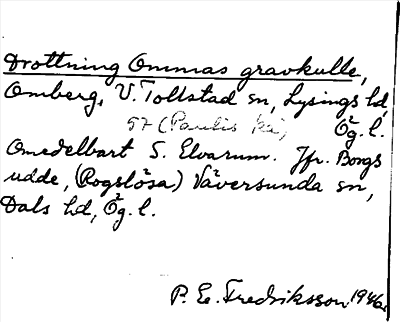 Drottning Ommas gravkulle,
Omberg, V. Tollstad sn, Lysings hd,
57 (Paulis ) Ög. l.
Omedelbart S. Elvarum. Jfr. Borgs
udde, (Rogslösa) Väversunda sn,
Dals hd, Ög. l.
P. E. Fredriksson 1946.